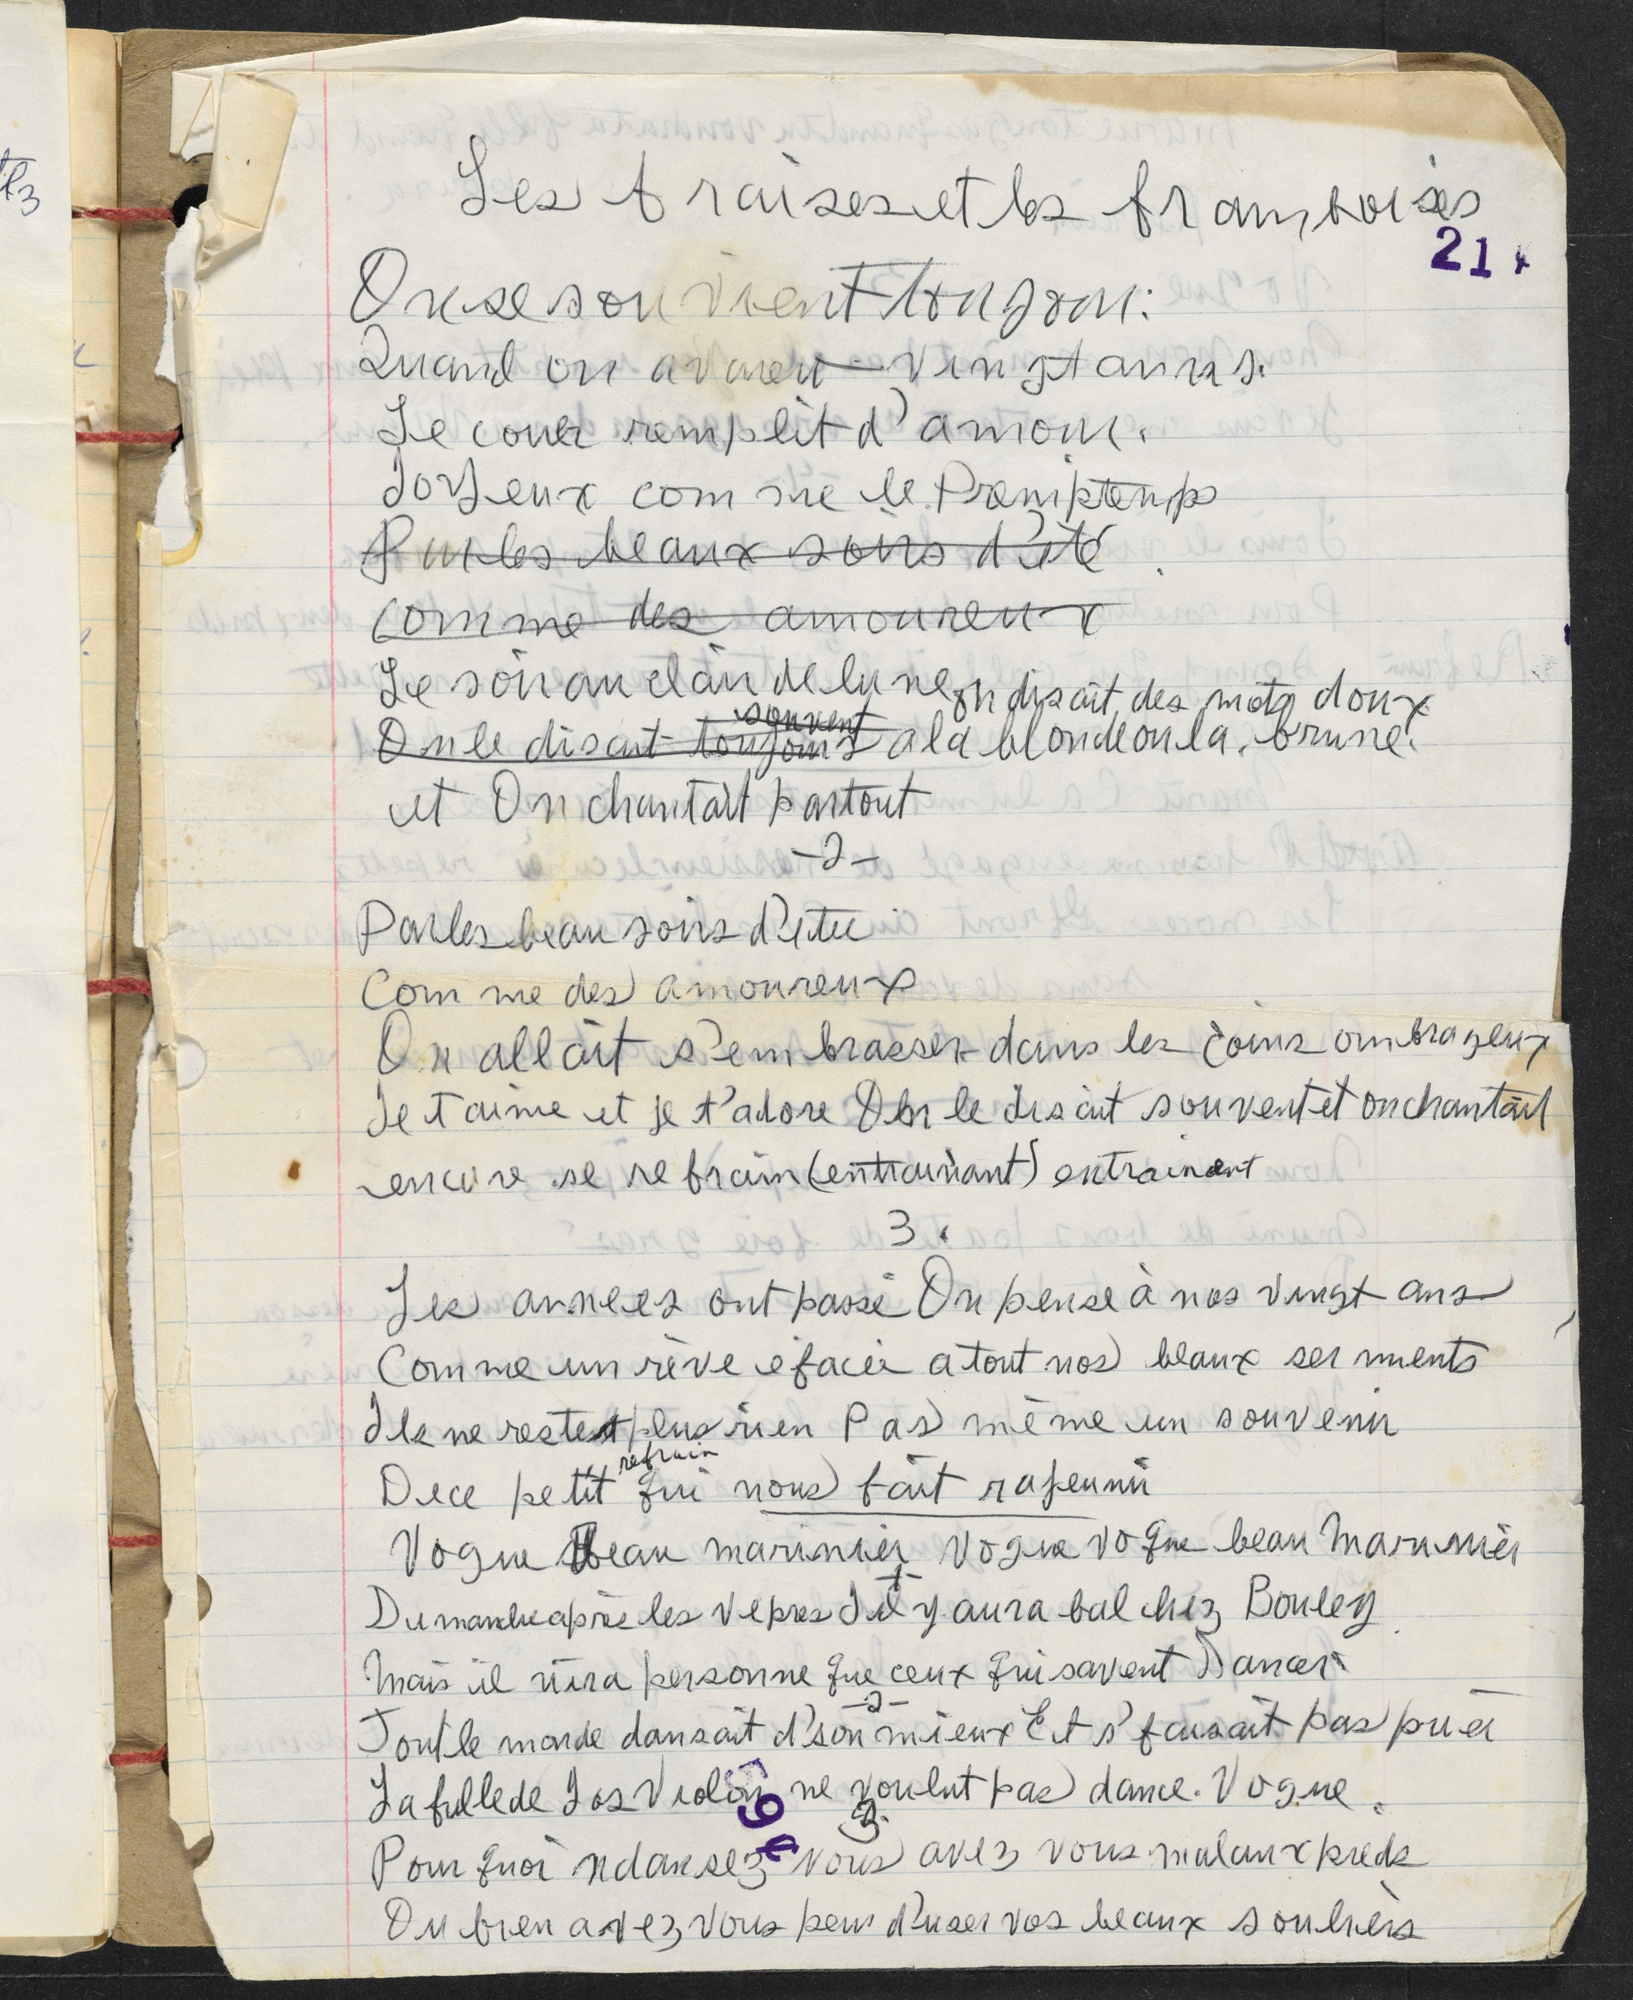 Les fraises et les framboises
21.
On se souvient toujour:
Quand on avaient vingt anns.
Le couer remplit d'amour.
Joyeux comme le Premptemps
Par les beaux soirs d'été
comme des amoureux
Le soir au clair de lune on disait des mots doux
souvent
On le disait toujours a la blonde ou la brune.
et On chantait partout
-2-
Par les beau soirs d'étee
Comme des amoureux
On allait s'embrasser dans les coins ombrageux
Je t'aime et je t'adore On le disait souvent et on chantait
encore se refrain (entrainant) entrainent
3.
Les annees ont passé On pense à nos vingt ans
Comme un rève efacée a tout nos beaux serments
Ils ne restent plus rien Pas même un souvenir
refrain
De ce petit qui nous fait rajeunir
Vogue Beau marinier Vogue vogue beau Marinnier
-1-
Dumanche après les vepres Il y aura bal chez Bouley
Mais il n'ira personne que ceux qui savent Dancer
-2-
Tout le monde dansait d'son mieux Et s'faisait pas prier
La fille de Jos Violon ne voulut pas dance. Vogue.
3.
Pourquoi ndansez vous avez vous mal aux pieds
Ou bien avez vous peur d'user vos beaux souliers